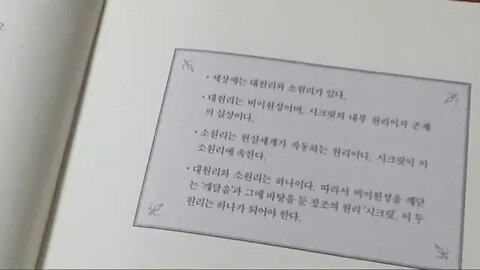 • 세상에는 대원리와 소원리가 있다.
• 대원리는 비이원성이며, 시크릿의 내부 원리이자 존재
의 실상이다.
• 소원리는 현실세계가 작동하는 원리이다. 시크릿이 이
소원리에 속한다.
• 대원리와 소원리는 하나이다. 따라서 비이원성을 깨닫
는 '깨달음'과 그에 바탕을 둔 창조의 원리 '시크릿', 이 두
원리는 하나가 되어야 한다.